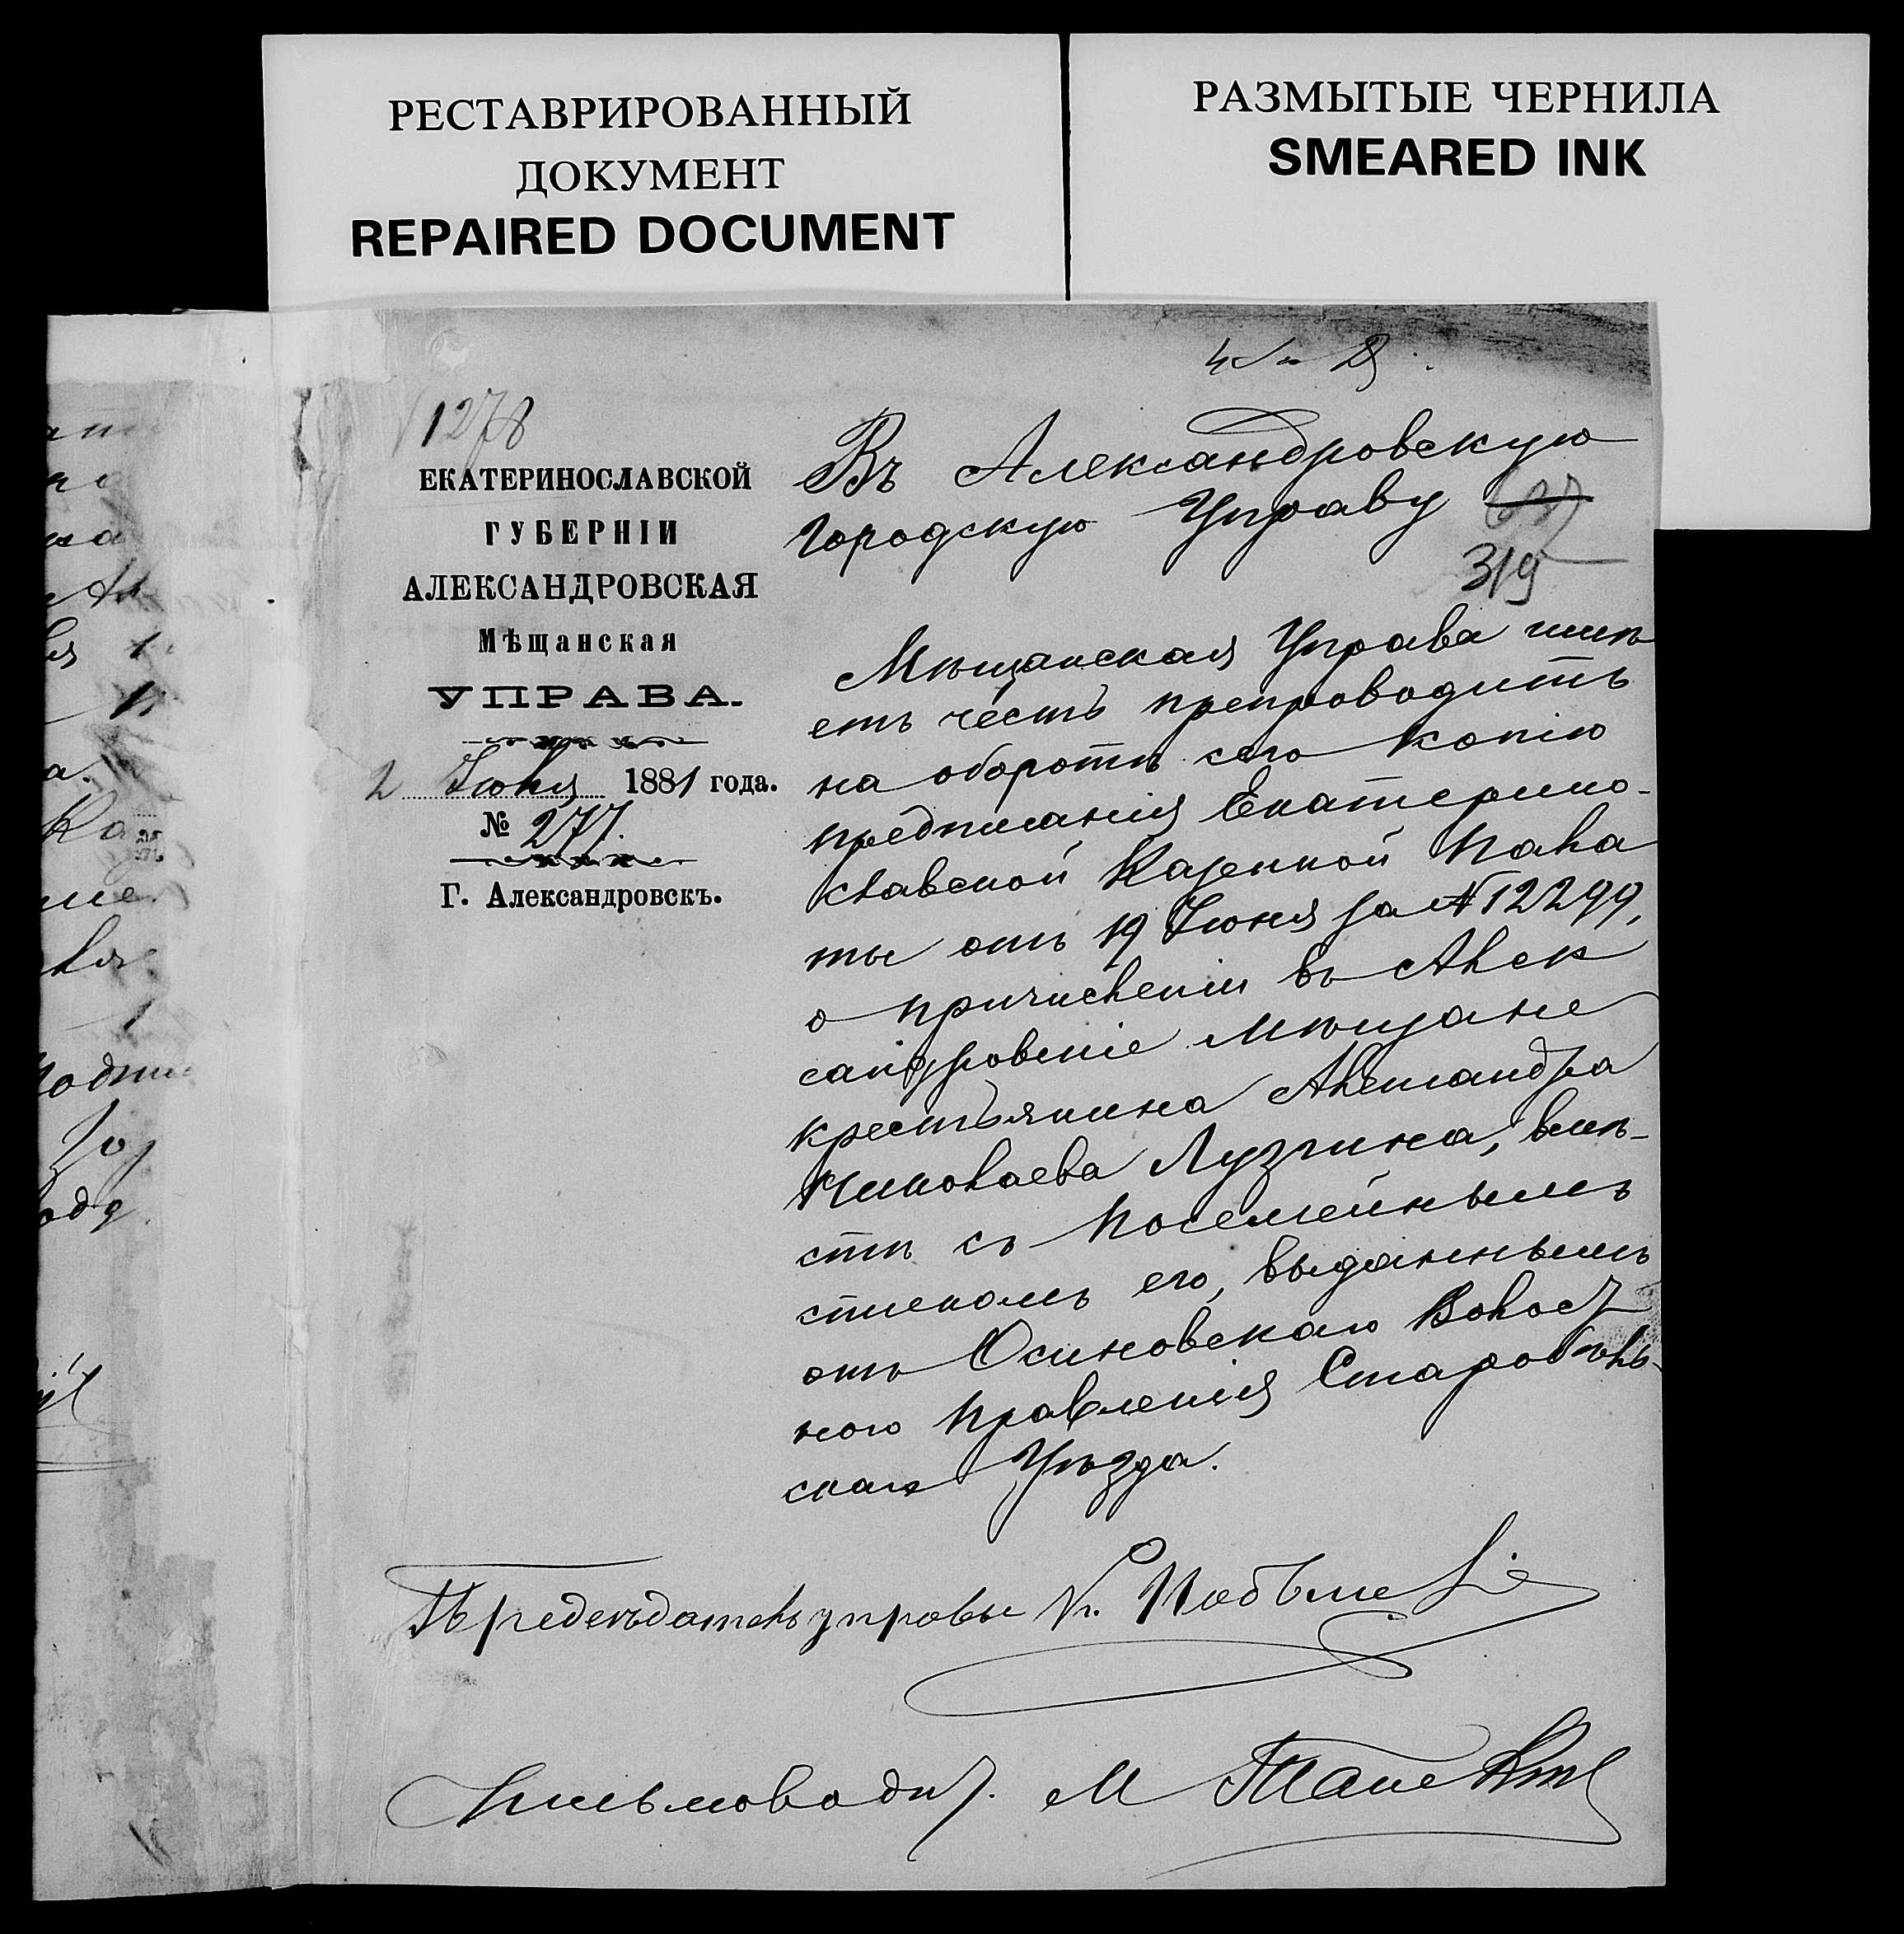 РЕСТАВРИРОВАННЫЙ
ДОКУМЕНТ
REPAIRED DOCUMENT
РАЗМЫТЫЕ ЧЕРНИЛА
SMEARED INK
1278
ЕКАТЕРИНОСЛАВСКОЙ
ГУБЕРНІИ
АЛЕКСАНДРОВСКАЯ
Мѣщанская
УПРАВА.
2 Іюля 1881 года.
№ 277.
Г. Александровскъ.
Въ Александровскую
Городскую Управу
319
Мѣщанская Управа имѣ
етъ честь препроводить
на оборотѣ сего копію
предписанія Екатерино-
славской Казенной Пала
ты отъ 19 Іюня за № 12299,
о причисленіи въ Алек
сандровскіе мѣщане
крестьянина Александра
Николаева Лузгина, вмѣ-
стѣ съ посемейнымъ
спискомъ его, выданнымъ
отъ Осиновскаго Волост
ного Правленія Старобѣль-
скаго Уѣзда.
Предсѣдатель управы
Письмоводит. М